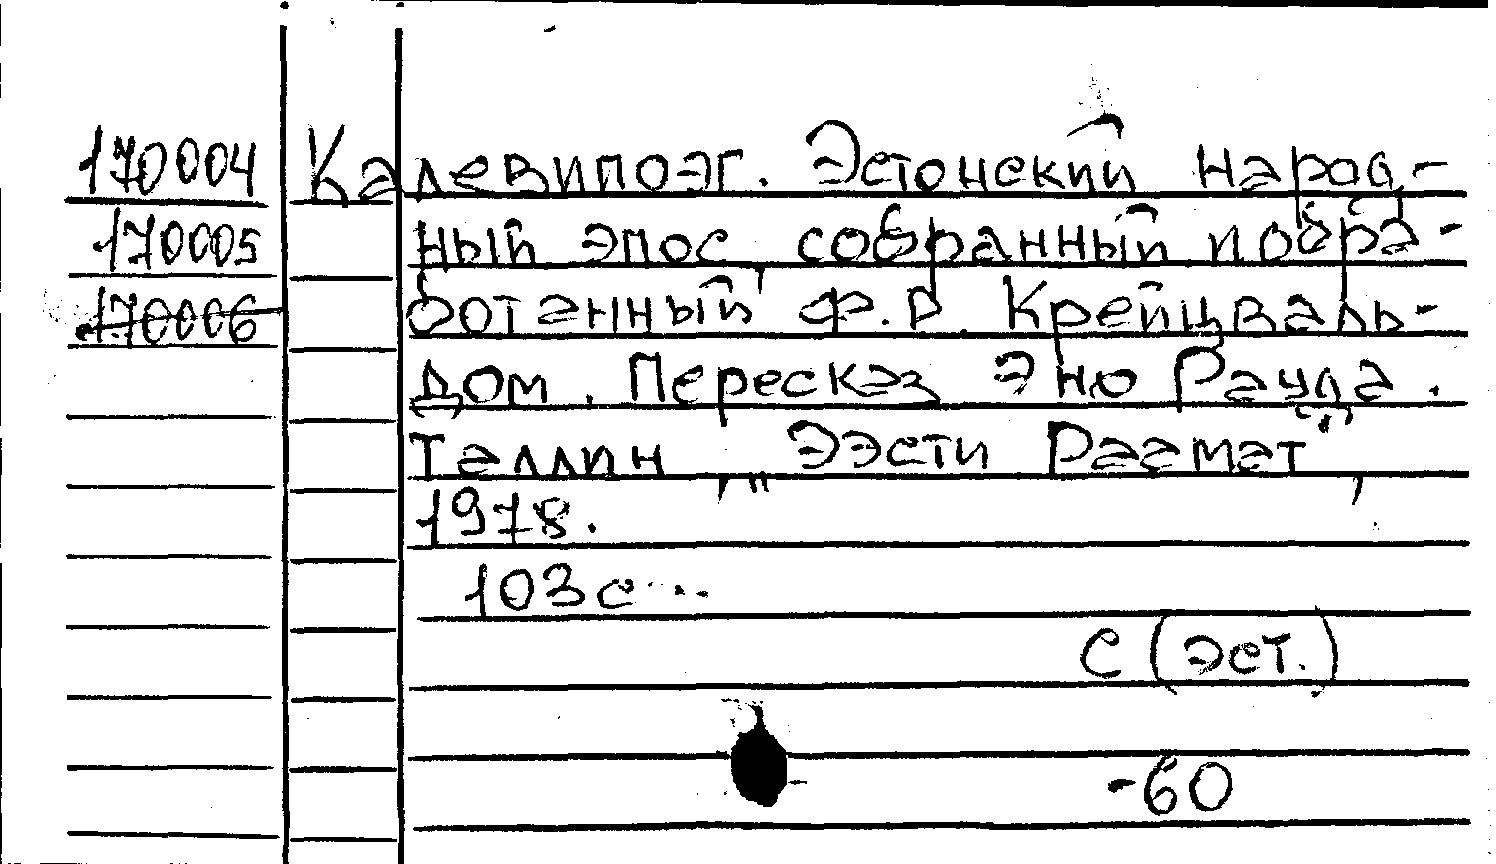 170004 Калевипоэг. Эстонский народ-
170005 ный эпос, собранный и обра-
170006 ботанный Ф.Р. Крейцваль-
дом. Пересказ Эно Рауда.
Таллин, "Ээсти Раамат",
1978.
103 с...
С (Эст.)
-60